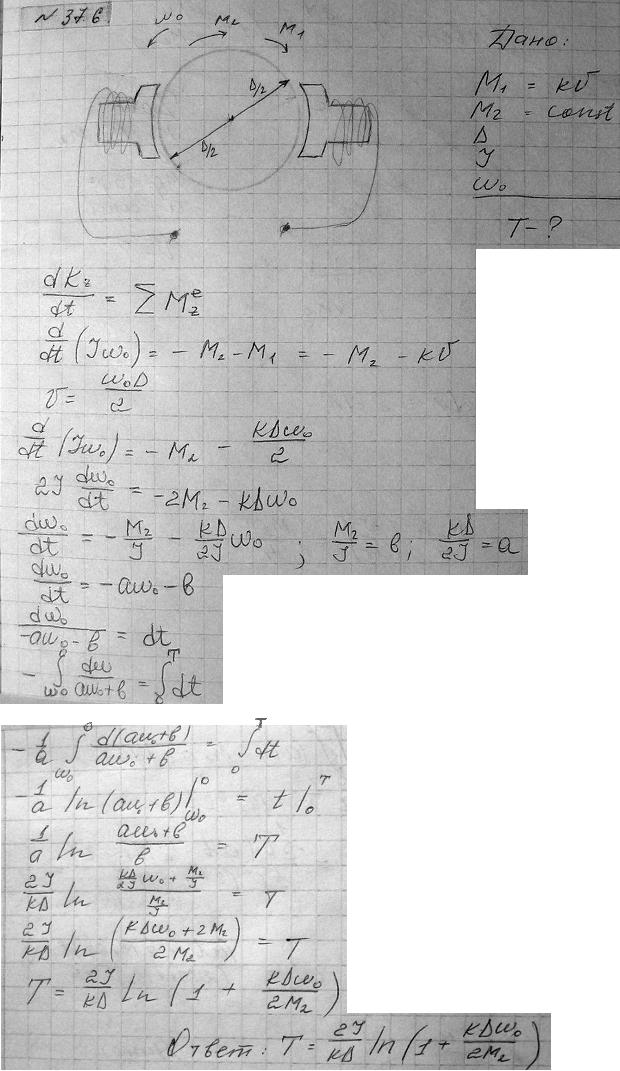 № 37.6
ω₀ M₂ M₁
D/2
D/2
Дано:
M₁ = kv
M₂ = const
D
J
ω₀
T - ?
dK_z/dt = ∑ M_z^e
d/dt (Jω₀) = - M₂ - M₁ = - M₂ - kv
v = ω₀D/2
d/dt (Jω₀) = - M₂ - kDω₀/2
2J dω₀/dt = -2M₂ - kDω₀
dω₀/dt = - M₂/J - kD/2J ω₀ ; M₂/J = в ; kD/2J = a
dω₀/dt = -aω₀ - в
dω₀/(-aω₀ - в) = dt
- ∫_ω₀^0 dω/(aω₀+в) = ∫_0^T dt
- 1/a ∫_ω₀^0 d(aω₀+в)/(aω₀+в) = ∫_0^T dt
- 1/a ln (aω₀+в) |_ω₀^0 = t |_0^T
1/a ln (aω₀+в)/в = T
2J/kD ln (kD/2J ω₀ + M₂/J)/(M₂/J) = T
2J/kD ln ((kDω₀ + 2M₂)/2M₂) = T
T = 2J/kD ln (1 + kDω₀/2M₂)
Ответ: T = 2J/kD ln (1 + kDω₀/2M₂)